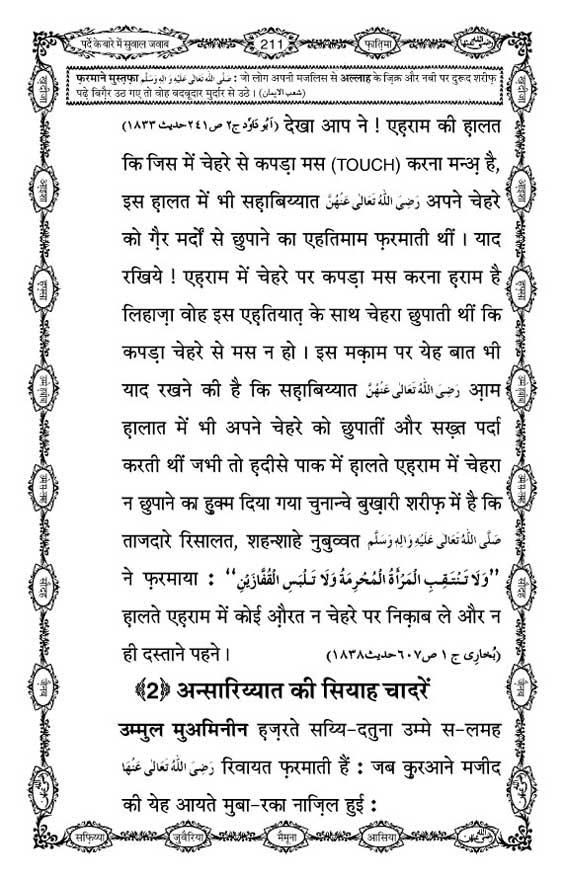 पर्दे के बारे में सुवाल जवाब
211
फ़ातिमा
फ़रमाने मुस्तफ़ा صَلَّى اللهُ تَعَالٰى عَلَيْهِ وَاٰلِهٖ وَسَلَّم : जो लोग अपनी मजलिस से अल्लाह के ज़िक्र और नबी पर दुरूद शरीफ़
पढ़े बिग़ैर उठ गए तो वोह बदबूदार मुर्दार से उठे । (شعب الايمان)
(اَبُو دَاوُد ج٢ ص٢٤١ حدیث ١٨٣٣) देखा आप ने ! एहराम की हालत
कि जिस में चेहरे से कपड़ा मस (TOUCH) करना मन्अ़ है,
इस हालत में भी सहाबिय्यात رَضِیَ اللهُ تَعَالٰی عَنْهُنَّ अपने चेहरे
को ग़ैर मर्दों से छुपाने का एहतिमाम फ़रमाती थीं । याद
रखिये ! एह़राम में चेहरे पर कपड़ा मस करना ह़राम है
लिहाज़ा वोह इस एह़तियात़ के साथ चेहरा छुपाती थीं कि
कपड़ा चेहरे से मस न हो । इस मक़ाम पर येह बात भी
याद रखने की है कि सह़ाबिय्यात رَضِیَ اللهُ تَعَالٰی عَنْهُنَّ आ़म
हालात में भी अपने चेहरे को छुपातीं और सख़्त पर्दा
करती थीं जभी तो ह़दीसे पाक में हालते एह़राम में चेहरा
न छुपाने का हुक्म दिया गया चुनान्चे बुख़ारी शरीफ़ में है कि
ताजदारे रिसालत, शहन्शाहे नुबुव्वत صَلَّى اللهُ تَعَالٰى عَلَيْهِ وَاٰلِهٖ وَسَلَّم
ने फ़रमाया : “وَلَا تَنْتَقِبِ الْمَرْأَةُ الْمُحْرِمَةُ وَلَا تَلْبَسِ الْقُفَّازَيْنِ”
हालते एह़राम में कोई औ़रत न चेहरे पर निक़ाब ले और न
ही दस्ताने पहने । (بُخارِی ج ١ ص ٦٠٧ حدیث ١٨٣٨)
﴾2﴿ अन्सारिय्यात की सियाह चादरें
उम्मुल मुअमिनीन ह़ज़रते सय्यि-दतुना उम्मे स-लमह
رَضِیَ اللهُ تَعَالٰی عَنْهَا रिवायत फ़रमाती हैं : जब कुरआने मजीद
की येह आयते मुबा-रका नाज़िल हुई :
सफ़िय्या
जुवैरिया
मैमूना
आसिया